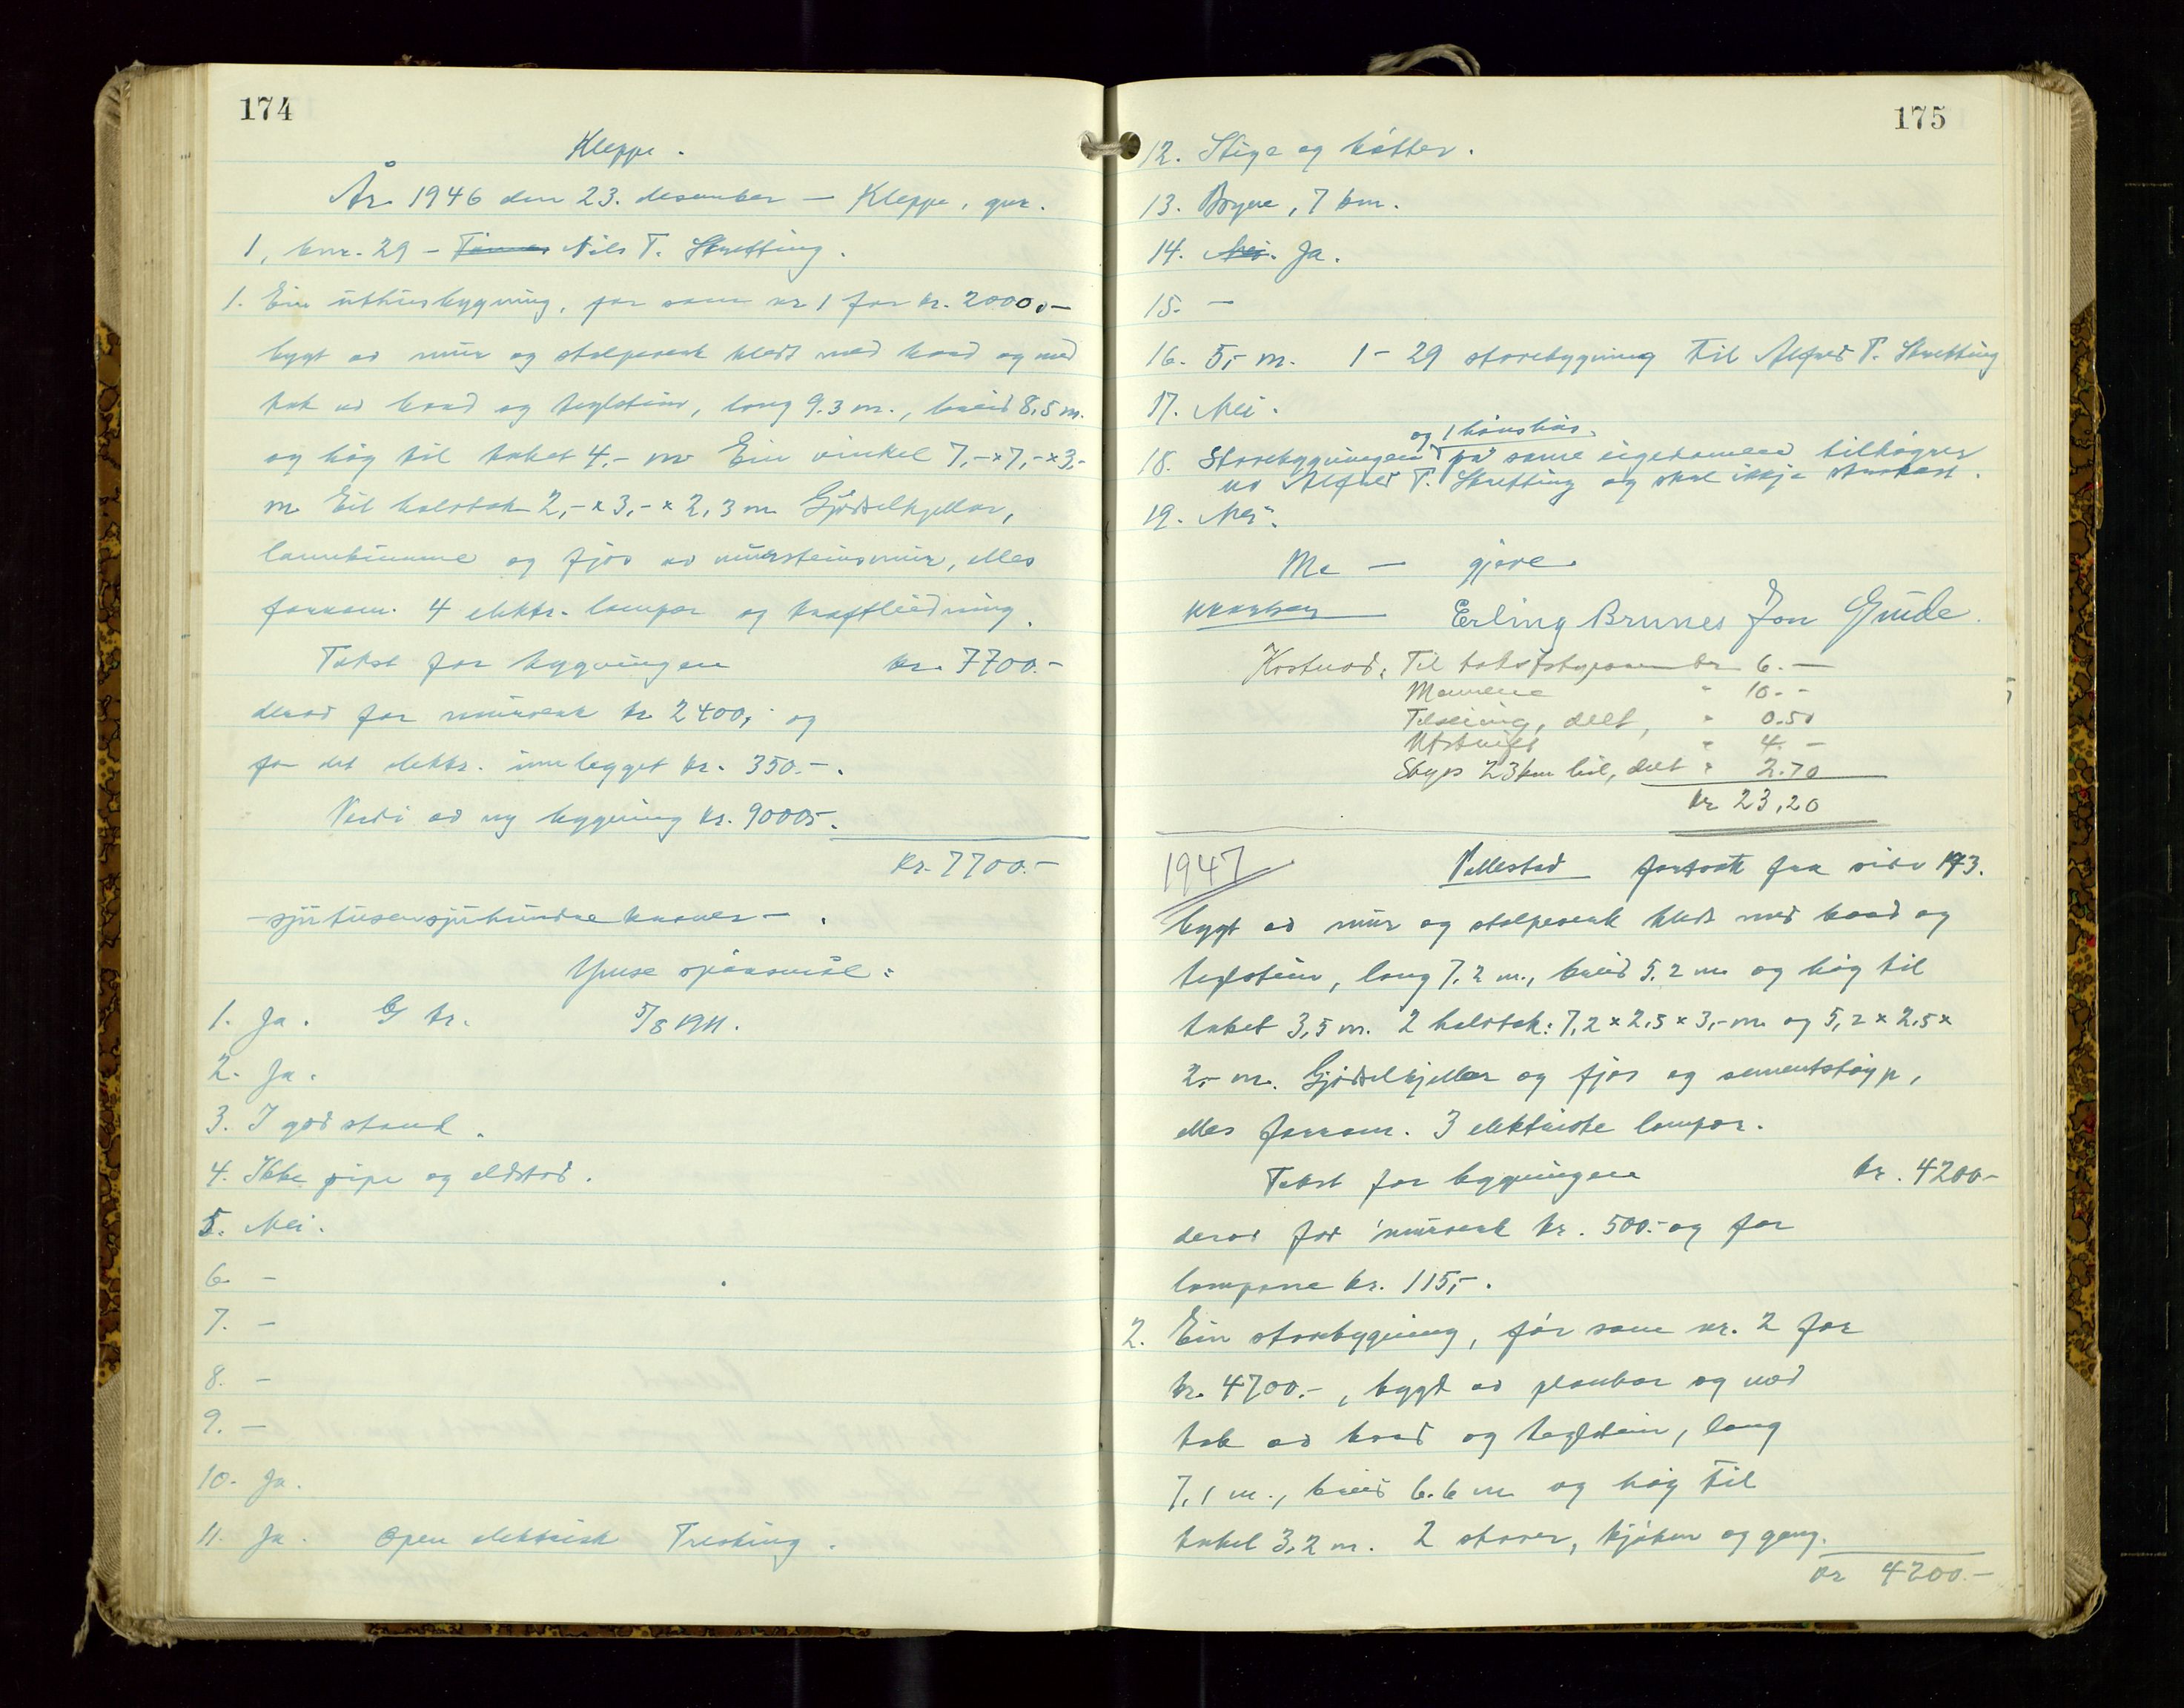 174
Kleppe.
År 1946 den 23. desember — Kleppe, gnr.
1, bnr. 29 – Nils T. Skretting.
1. Ein uthusbygning, før som nr 1 for kr. 2000,-
bygt av mur og stolpeverk kledt med bord og med
tak av bord og teglstein, lang 9.3 m., breid 8,5 m.
og høg til taket 4,- m Ein vinkel 7,- x 7,- x 3,-
m Eit halvtak 2,- x 3,- x 2,3 m Gjødselkjellar,
lannkumme og fjøs av mursteinsmur, elles
fôrrom. 4 elektr. lampor og kraftleidning.
Takst for bygningen kr. 7700.-
derav for murverk kr 2400,- og
for det elektr. innlegget kr. 350.-.
Verdi av ny bygning kr. 9000,-.
kr. 7700.-
- sjutusensjuhundre kroner - .
Ymse spørsmål:
1. Ja. G kr. 5/8 1911.
2. Ja.
3. I god stand.
4. Ikke pipe og eldstad.
5. Nei.
6. -
7. -
8. -
9. -
10. Ja.
11. Ja. Open elektrisk Tresking.
175
12. Stige og bøtter.
13. Bryne, 7 km.
14. Nei. Ja.
15. -
16. 5,- m. 1 - 29 stovebygning til Alfred T. Skretting
17. Nei.
og 1 hønshus.
18. Stovebygningen på same eigedomen tilhøyrer
no Alfred T. Skretting og skal ikkje .
19. Nei.
Me — gjeve
Erling Brunes Jon Gjude.
Kostnad: Til takstbestyraren kr 6.-
Mennene " 10.-
Tilseiing, delt, " 0.50
Utskrift " 4.-
Skyss 23 km bil, delt " 2.70
kr 23,20
1947 Vallestad fortsatt fra side 173.
bygt av mur og stolpeverk kledt med bord og
teglstein, lang 7.2 m., breid 5.2 m og høg til
taket 3,5 m. 2 halvtak: 7,2 x 2,5 x 3,- m og 5,2 x 2,5 x
2,- m. Gjødselkjellar og fjøs og sementstøyp,
elles fôrrom. 3 elektriske lampor.
Takst for bygningen kr. 4200-
derav for murverk kr. 500.- og for
lampone kr. 115,-.
2. Ein stovebygning, før som nr. 2 for
kr. 4700.-, bygd av plankar og med
tak av bord og teglstein, lang
7,1 m., breid 6.6 m og høg til
taket 3,2 m. 2 stover, kjøken og gang.
kr 4200.-